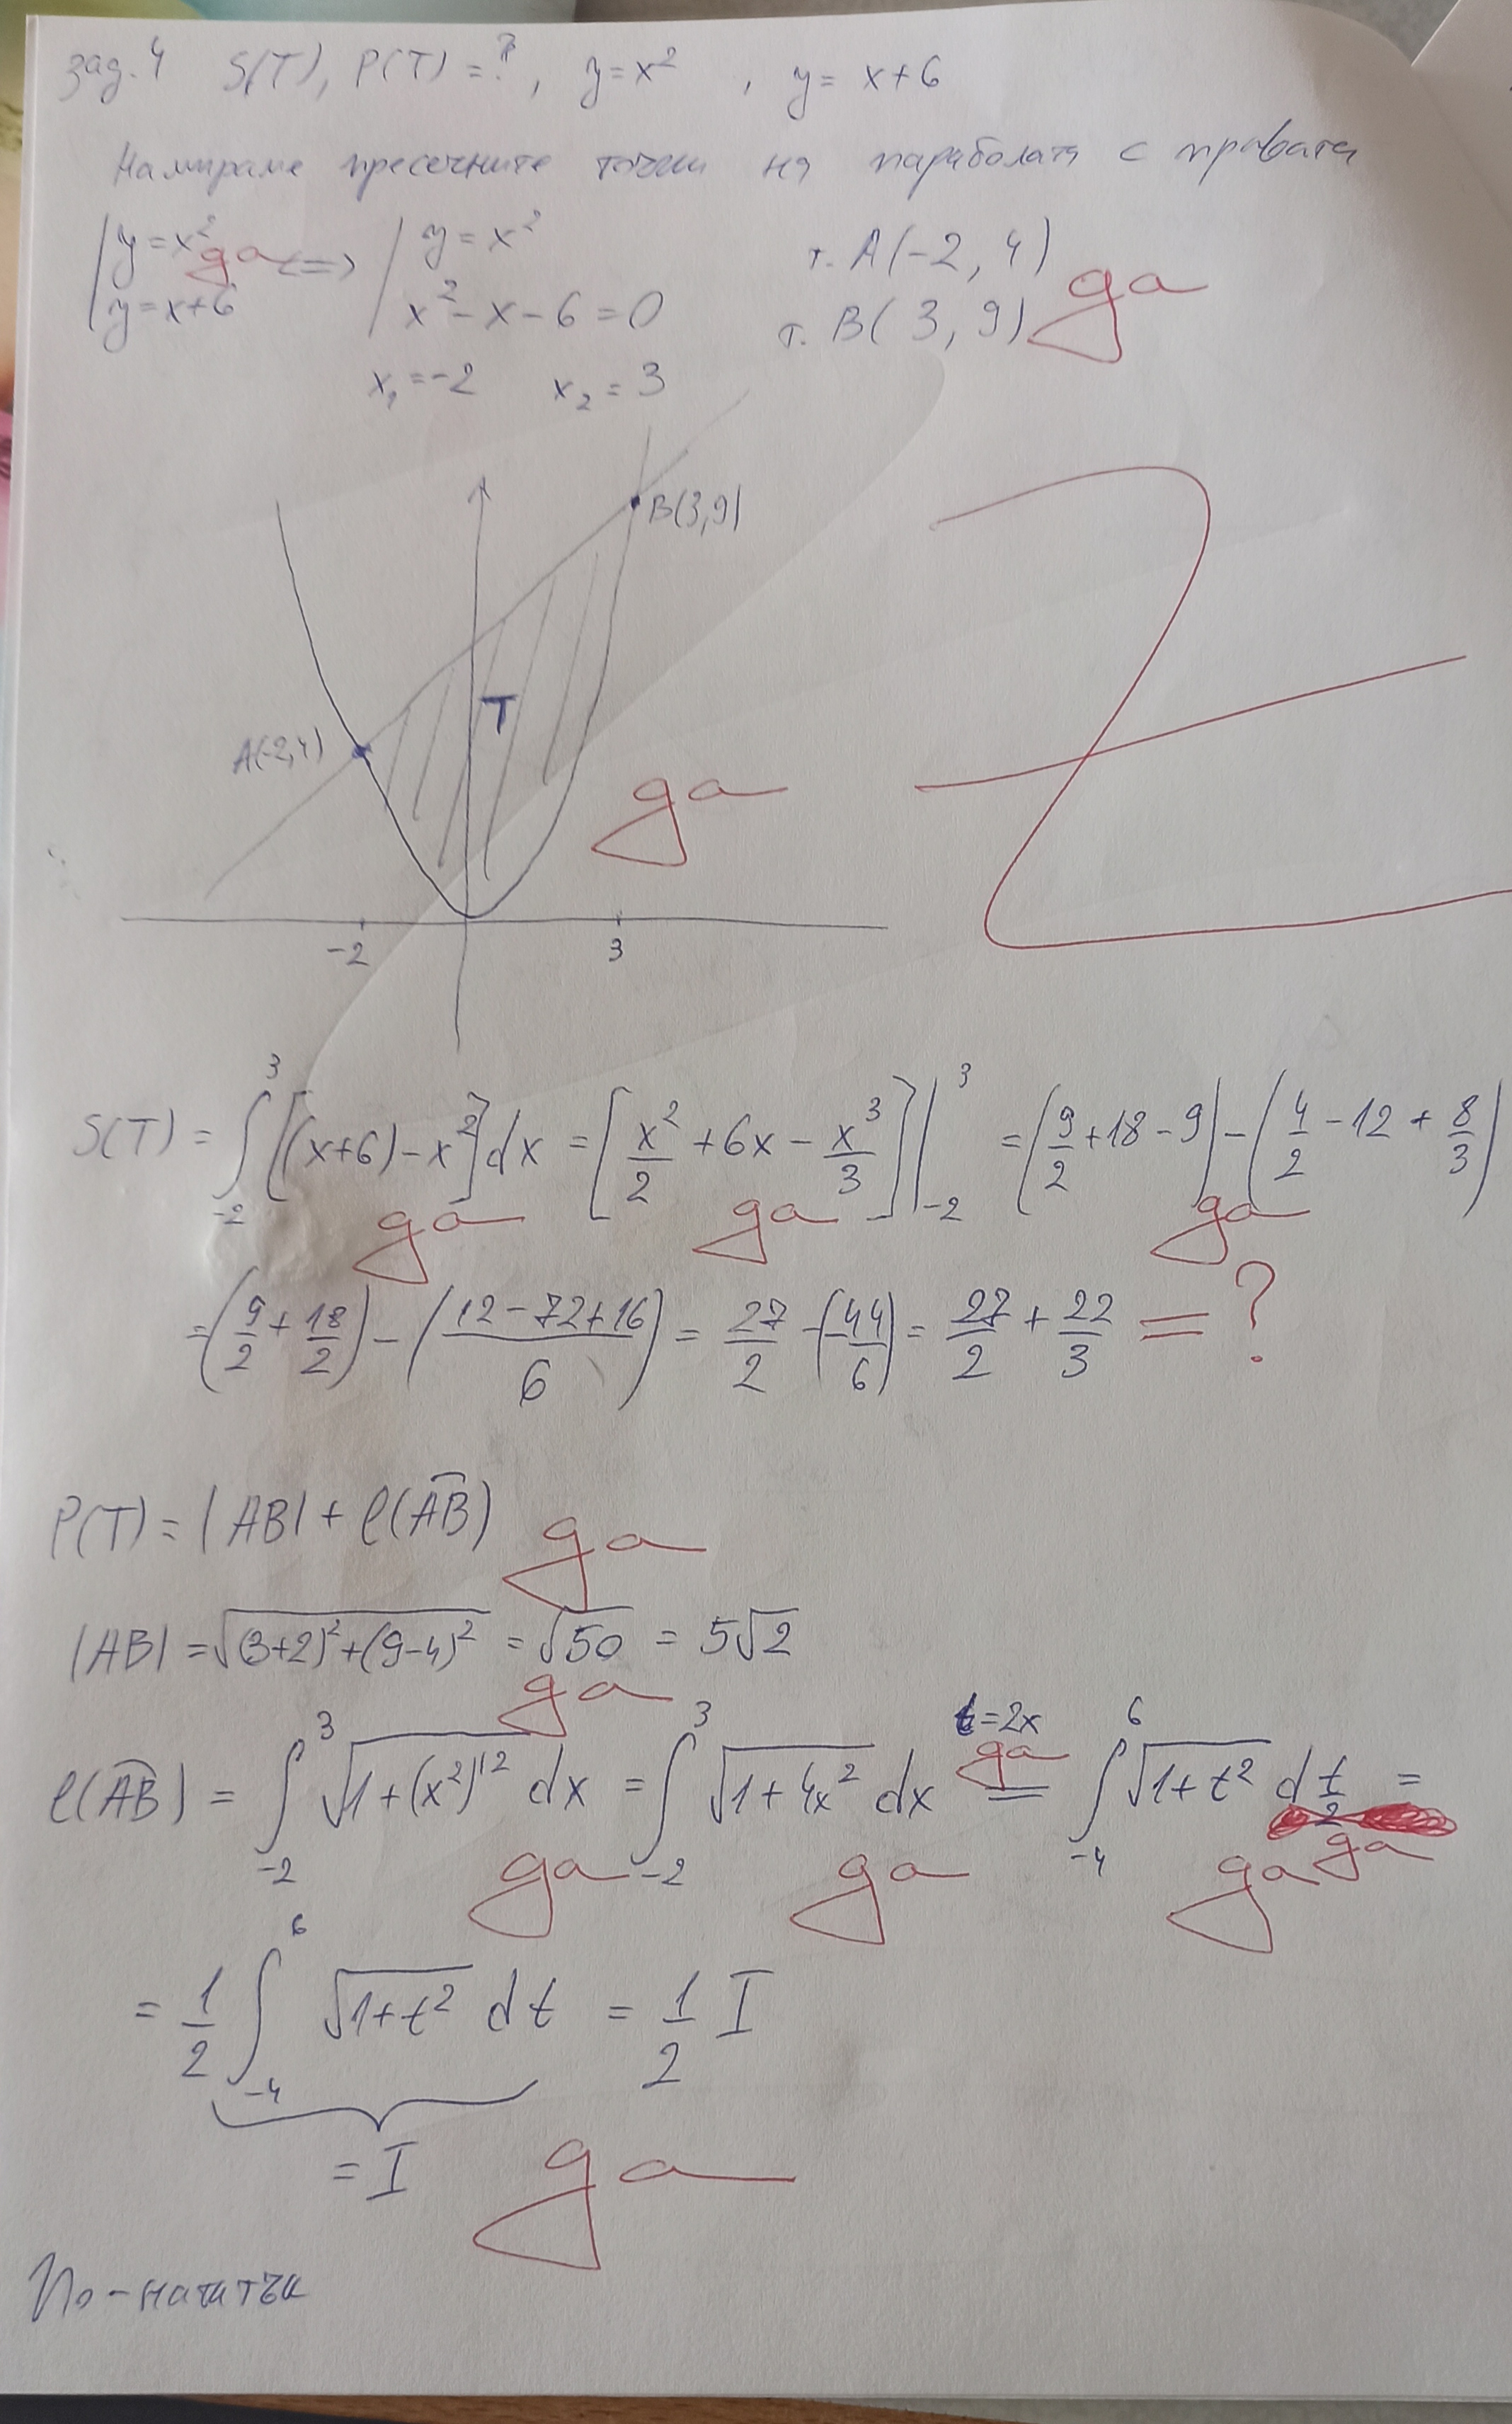 зад. 4 S(T), P(T) = ?, y = x², y = x+6
Намираме пресечните точки на параболата с правата
| y = x² да <=> | y = x² т. A(-2, 4) да
| y = x+6 | x² - x - 6 = 0 т. B(3, 9)
x₁ = -2 x₂ = 3
B(3,9)
T
A(-2,4)
да
-2 3
S(T) = ∫₋₂³ [(x+6) - x²] dx = [x²/2 + 6x - x³/3] |₋₂³ = (9/2 + 18 - 9) - (4/2 - 12 + 8/3)
да да да
= (9/2 + 18/2) - ((12 - 72 + 16)/6) = 27/2 - (-44/6) = 27/2 + 22/3 = ?
P(T) = |AB| + l(AB) да
|AB| = √((3+2)² + (9-4)²) = √50 = 5√2
да
l(AB) = ∫₋₂³ √(1+(x²)'²) dx = ∫₋₂³ √(1+4x²) dx = (t=2x) да ∫₋₄⁶ √(1+t²) d t/2 =
да да да да
= 1/2 ∫₋₄⁶ √(1+t²) dt = 1/2 I
= I да
По-нататък